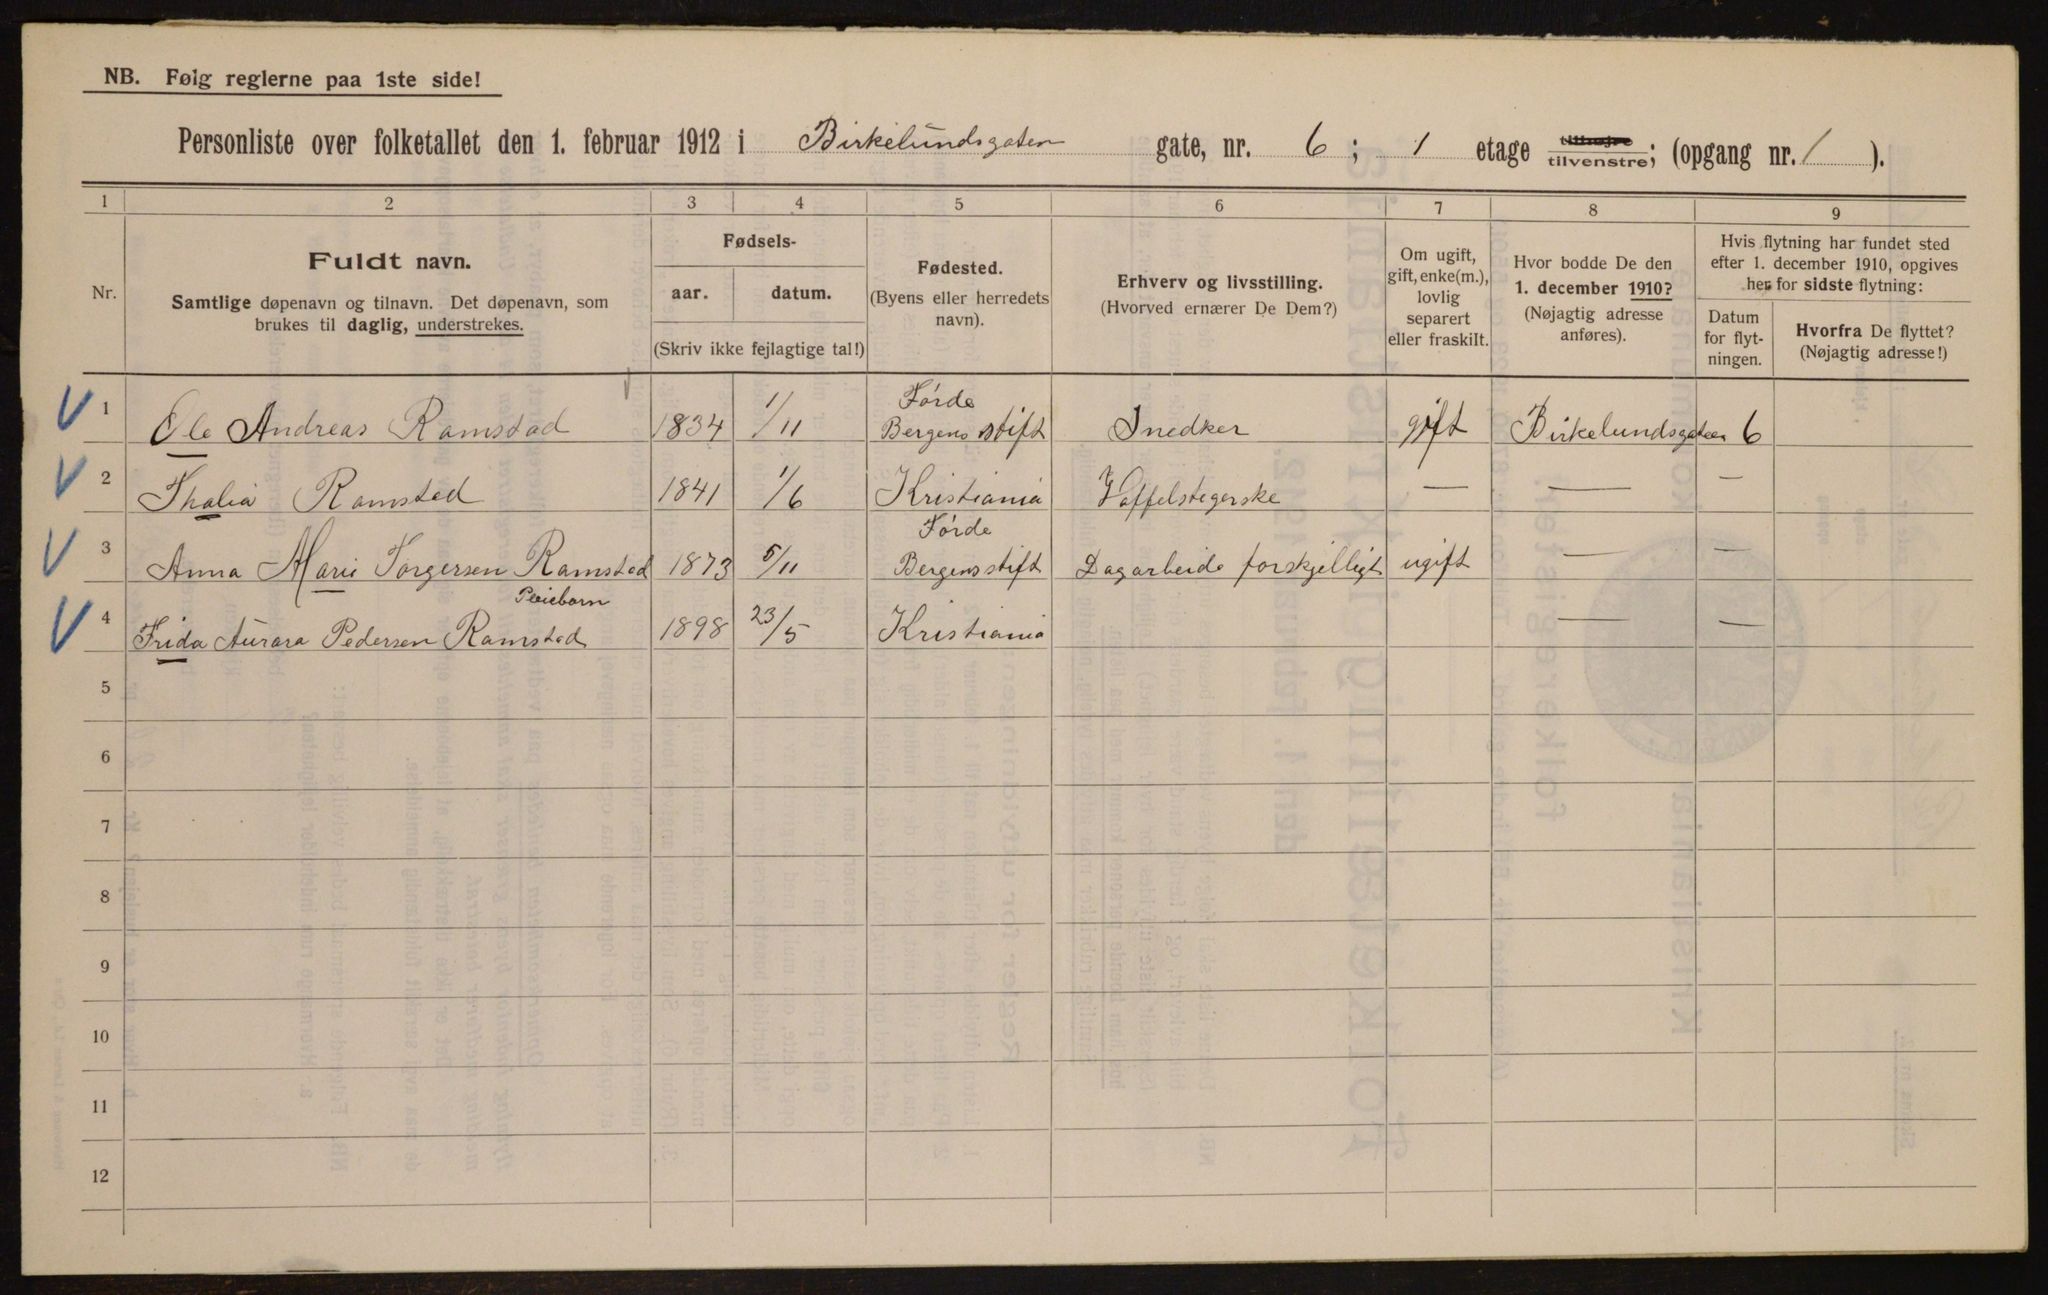 NB. Følg reglerne paa 1ste side!
Personliste over folketallet den 1. februar 1912 i Birkelundsgaten gate, nr. 6; 1 etage tilhøjre tilvenstre; (opgang nr. 1).
1 2 3 4 5 6 7 8 9
Nr.
Fuldt navn.
Samtlige døpenavn og tilnavn. Det døpenavn, som
brukes til daglig, understrekes.
Fødsels-
aar. datum.
(Skriv ikke fejlagtige tal!)
Fødested.
(Byens eller herredets
navn).
Erhverv og livsstilling.
(Hvorved ernærer De Dem?)
Om ugift,
gift, enke(m.),
lovlig
separert
eller fraskilt.
Hvor bodde De den
1. december 1910?
(Nøjagtig adresse
anføres).
Hvis flytning har fundet sted
efter 1. december 1910, opgives
her for sidste flytning:
Datum
for flyt-
ningen.
Hvorfra De flyttet?
(Nøjagtig adresse!)
Førde
1 Ole Andreas Ramstad 1834 1/11 Bergens stift Snedker gift Birkelundsgaten 6
2 Thalia Ramstad 1841 1/6 Kristiania Vaffelstegerske — — —
Førde
3 Anna Marie Torgersen Ramstad 1873 5/11 Bergens stift Dagarbeide forskjelligt ugift — —
Pleiebarn
4 Frida Aurora Pedersen Ramstad 1898 23/5 Kristiania — —
5
6
7
8
9
10
11
12